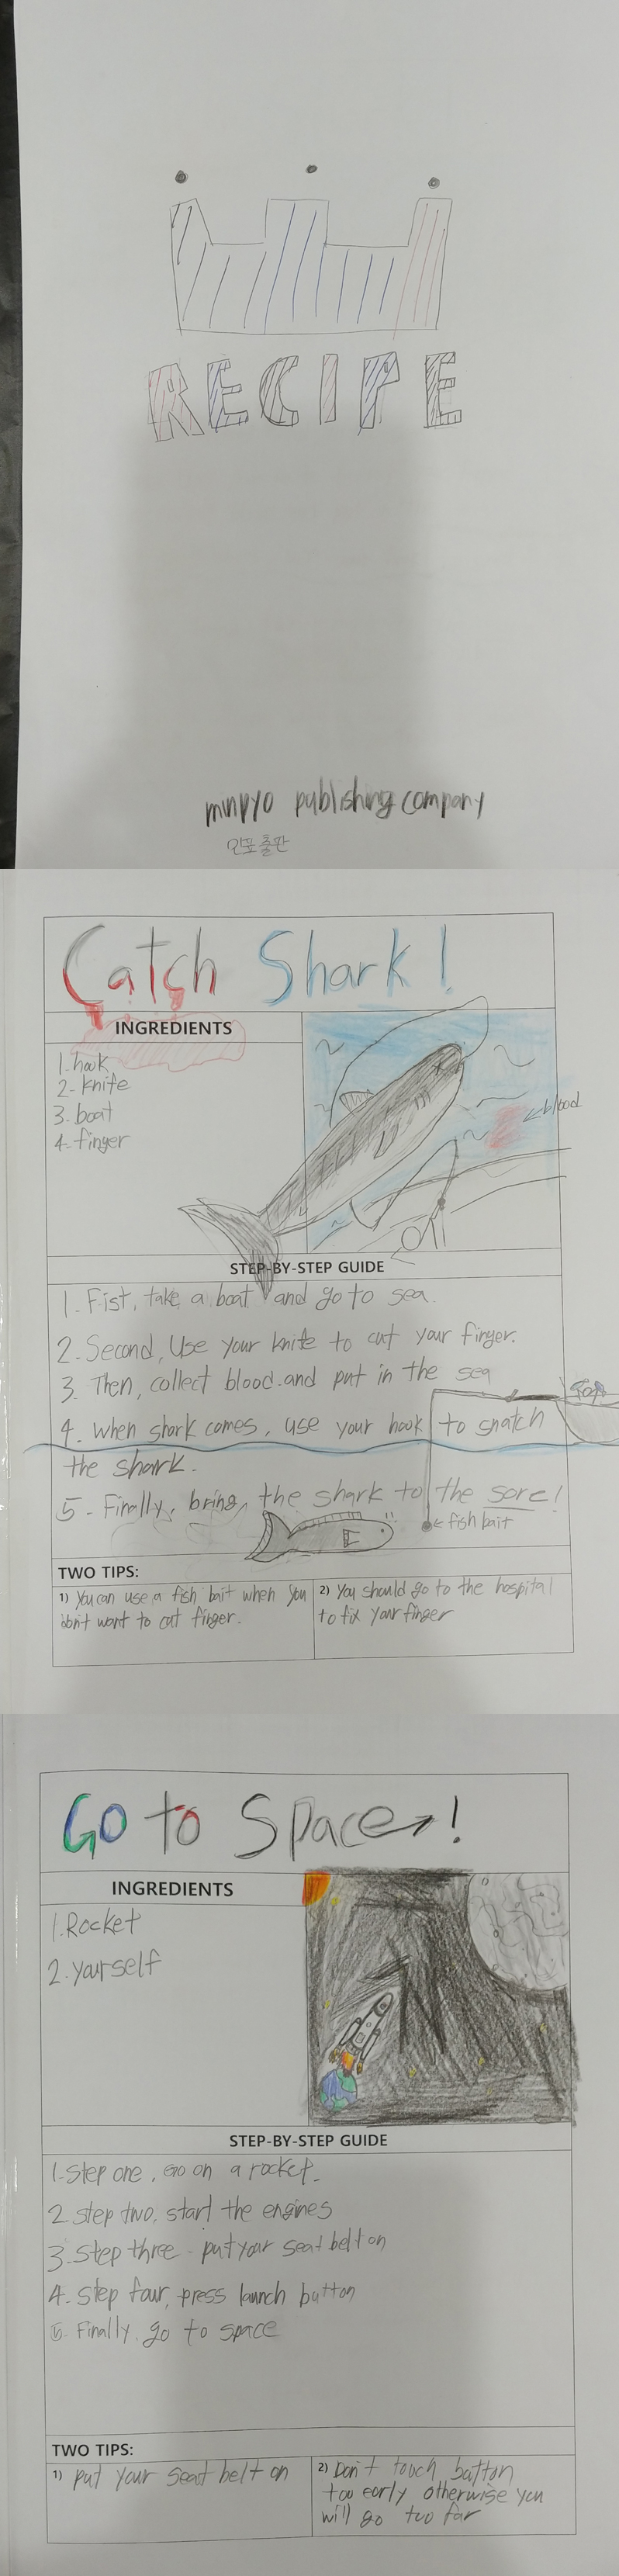 RECIPE
minpyo publishing company
민표출판
Catch Shark!
INGREDIENTS
1. hook
2. knife
3. boat
4. finger
←blood
STEP-BY-STEP GUIDE
1. Fist, take a boat and go to sea.
2. Second, Use your knife to cut your finger.
3. Then, collect blood and put in the sea
4. when shark comes, use your hook to snatch
the shark.
5. Finally, bring the shark to the sore!
←fish bait
TWO TIPS:
1) You can use a fish bait when you
don't want to cut finger.
2) You should go to the hospital
to fix your finger
Go to Space→!
INGREDIENTS
1. Rocket
2. yourself
STEP-BY-STEP GUIDE
1. Step one, Go on a rocket.
2. step two, start the engines
3. Step three - put your seat belt on
4. Step four, press launch button
5. Finally. go to space
TWO TIPS:
1) put your seat belt on
2) Don't touch button
too early otherwise you
will go too far